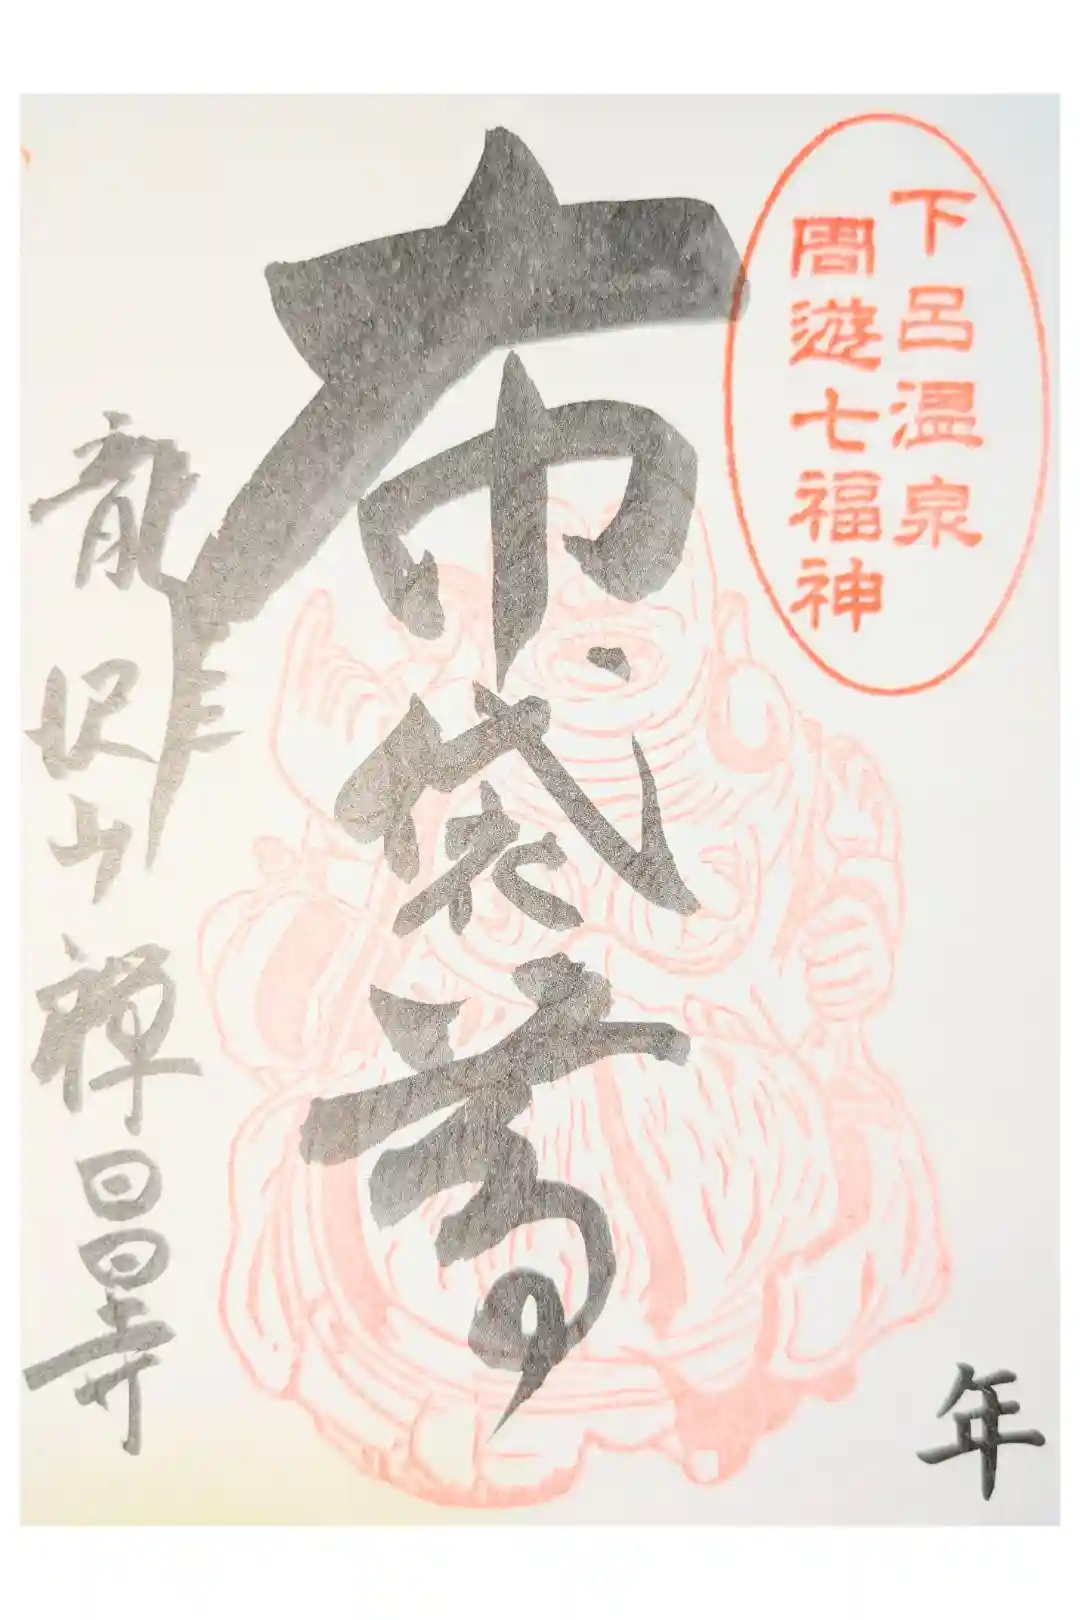 下呂温泉
周遊七福神
年
布袋尊
龍沢山禅昌寺